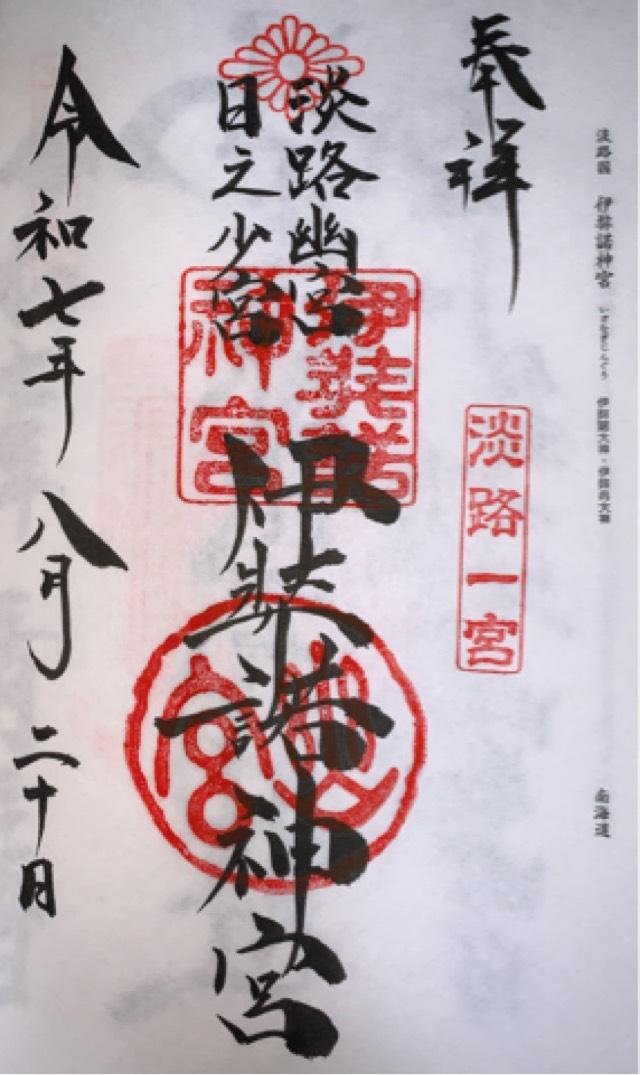 淡路國 伊弉諾神宮 いざなぎじんぐう 伊弉諾大神・伊弉冉大神 南海道
奉祥
淡路一宮
淡路幽宮
日之少宮
伊弉諾
神宮
伊弉諾神宮
幽宮
令和七年 八月 二十月